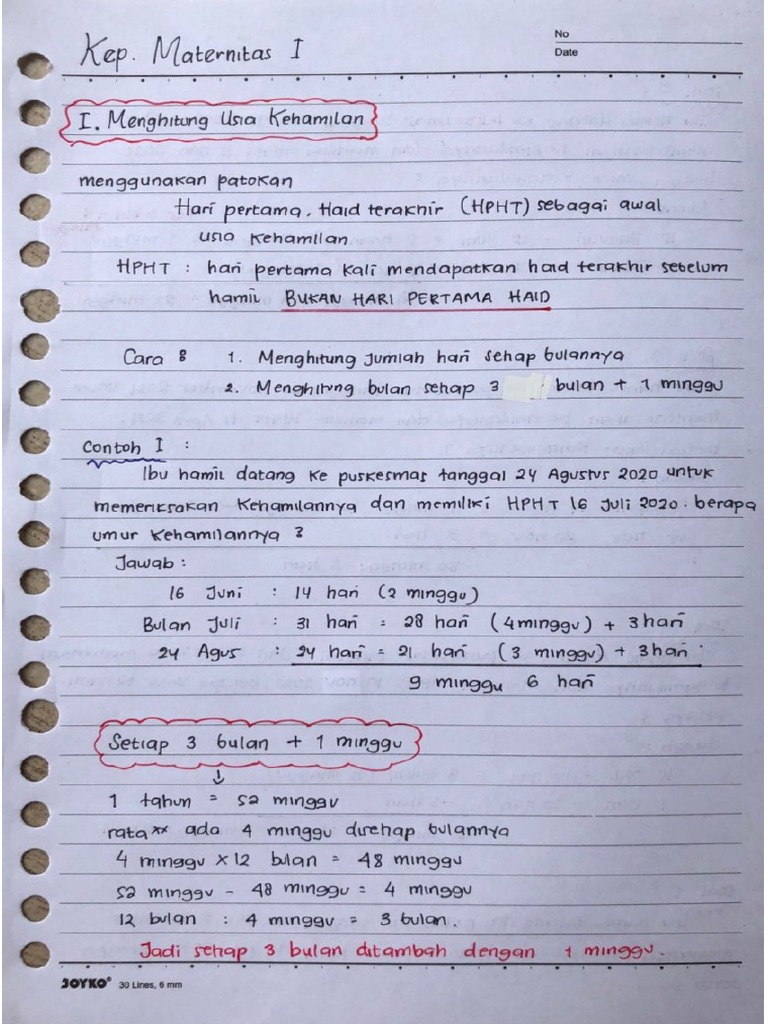 No
Date
Kep. Maternitas I
I. Menghitung Usia Kehamilan
menggunakan patokan
Hari pertama. Haid terakhir (HPHT) sebagai awal
usia kehamilan.
HPHT : hari pertama kali mendapatkan haid terakhir sebelum
hamil BUKAN HARI PERTAMA HAID
Cara : 1. Menghitung jumlah hari setiap bulannya
2. Menghitung bulan setiap 3 bulan + 1 minggu
Contoh I :
Ibu hamil datang ke puskesmas tanggal 24 Agustus 2020 untuk
memeriksakan kehamilannya dan memiliki HPHT 16 Juli 2020. berapa
umur kehamilannya ?
Jawab :
16 Juni : 14 hari (2 minggu)
Bulan Juli : 31 hari = 28 hari (4 minggu) + 3 hari
24 Agus : 24 hari = 21 hari (3 minggu) + 3 hari
9 minggu 6 hari
Setiap 3 bulan + 1 minggu
↓
1 tahun = 52 minggu
rata** ada 4 minggu disetiap bulannya
4 minggu x 12 bulan = 48 minggu
52 minggu - 48 minggu = 4 minggu
12 bulan : 4 minggu = 3 bulan.
Jadi setiap 3 bulan ditambah dengan 1 minggu.
JOYKO® 30 Lines, 6 mm